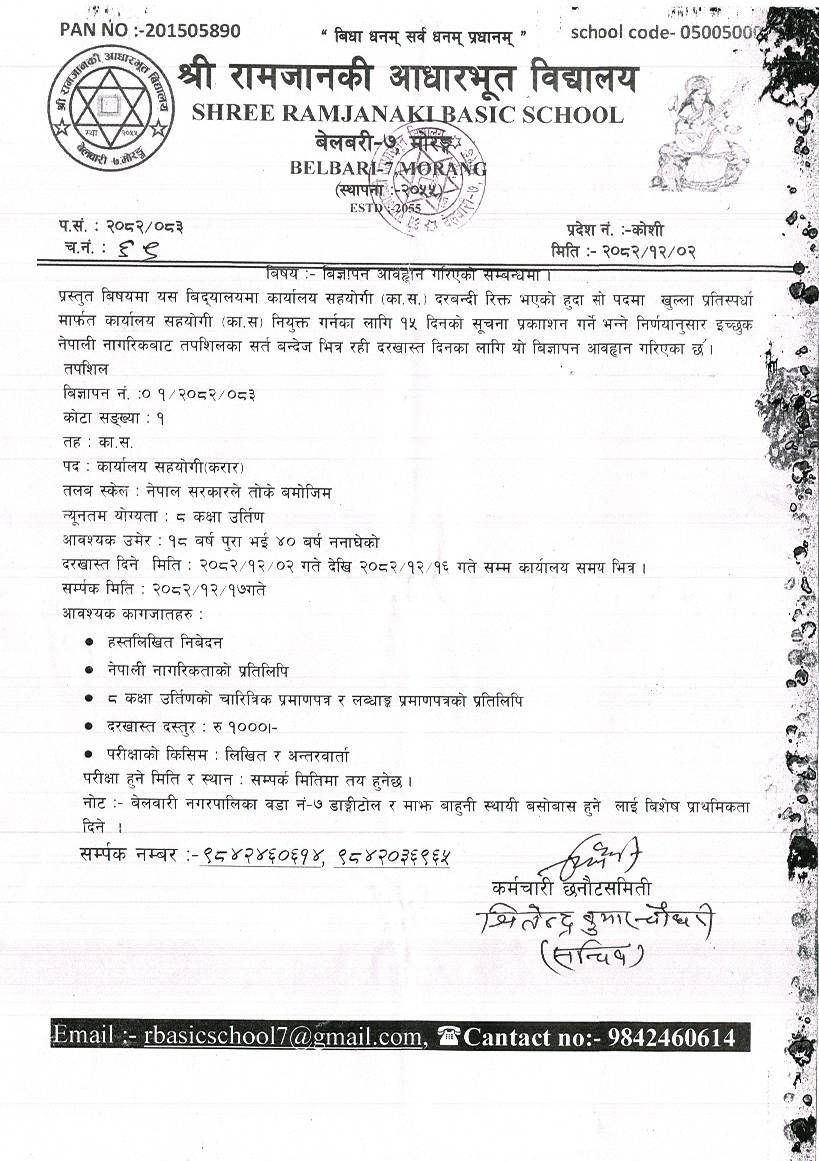 PAN NO :-201505890
“ बिधा धनम् सर्व धनम् प्रधानम् ”
school code- 05005000
श्री रामजानकी आधारभूत विद्यालय
SHREE RAMJANAKI BASIC SCHOOL
बेलबरी-७, मोरङ्ग
BELBARI-7,MORANG
(स्थापना :-२०५५)
ESTD :-2055
श्री रामजानकी आधारभूत विद्यालय
स्था २०५५
बेलवारी ७, मोरङ्ग
प.सं. : २०८२/०८३
प्रदेश नं. :-कोशी
च.नं. : ६९
मिति :- २०८२/१२/०२
विषय :- बिज्ञापन आवह्वान गरिएको सम्बन्धमा ।
प्रस्तुत बिषयमा यस बिद्यालयमा कार्यालय सहयोगी (का.स.) दरबन्दी रिक्त भएको हुदा सो पदमा खुल्ला प्रतिस्पर्धा
मार्फत कार्यालय सहयोगी (का.स) नियुक्त गर्नका लागि १५ दिनको सूचना प्रकााशन गर्ने भन्ने निर्णयानुसार इच्छुक
नेपाली नागरिकबाट तपशिलका सर्त बन्देज भित्र रही दरखास्त दिनका लागि यो बिज्ञापन आवह्वान गरिएका छ ।
तपशिल
बिज्ञापन नं. :० १/२०८२/०८३
कोटा सङ्ख्या : १
तह : का.स.
पद : कार्यालय सहयोगी(करार)
तलब स्केल : नेपाल सरकारले तोके बमोजिम
न्यूनतम योग्यता : ८ कक्षा उर्तिण
आवश्यक उमेर : १८ बर्ष पुरा भई ४० बर्ष ननाघेको
दरखास्त दिने मिति : २०८२/१२/०२ गते देखि २०८२/१२/१६ गते सम्म कार्यालय समय भित्र ।
सर्म्पक मिति : २०८२/१२/१७गते
आवश्यक कागजातहरु :
● हस्तलिखित निबेदन
● नेपाली नागरिकताको प्रतिलिपि
● ८ कक्षा उर्तिणको चारित्रिक प्रमाणपत्र र लब्धाङ्क प्रमाणपत्रको प्रतिलिपि
● दरखास्त दस्तुर : रु १०००।-
● परीक्षाको किसिम : लिखित र अन्तरवार्ता
परीक्षा हुने मिति र स्थान : सम्पर्क मितिमा तय हुनेछ ।
नोट :- बेलवारी नगरपालिका वडा नं-७ डाङ्गीटोल र माझ बाहुनी स्थायी बसोबास हुने लाई विशेष प्राथमिकता
दिने ।
सर्म्पक नम्बर :-९८४२४६०६१४, ९८४२०३६९६५
कर्मचारी छनौटसमिती
जितेन्द्र कुमार चौधरी
(सचिव)
Email :- rbasicschool7@gmail.com, ☎Cantact no:- 9842460614